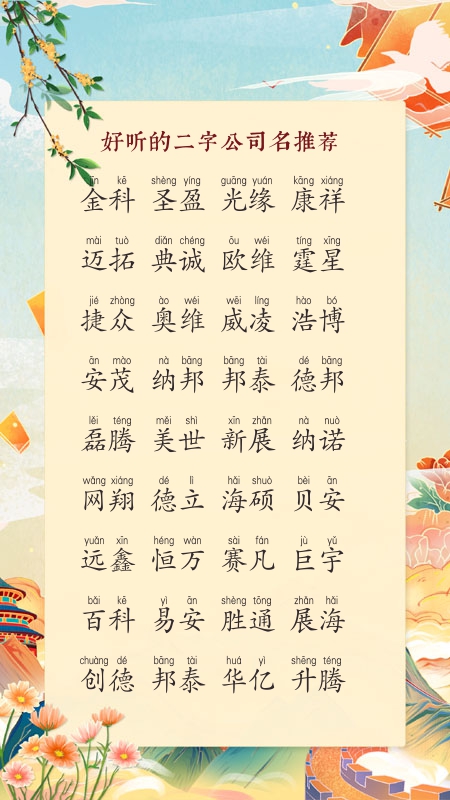 好听的二字公司名推荐
jīn kē shèng yíng guāng yuán kāng xiáng
金科 圣盈 光缘 康祥
mài tuò diǎn chéng ōu wéi tíng xīng
迈拓 典诚 欧维 霆星
jié zhòng ào wéi wēi líng hào bó
捷众 奥维 威凌 浩博
ān mào nà bāng bāng tài dé bāng
安茂 纳邦 邦泰 德邦
lěi téng měi shì xīn zhǎn nà nuò
磊腾 美世 新展 纳诺
wǎng xiáng dé lì hǎi shuò bèi ān
网翔 德立 海硕 贝安
yuǎn xīn héng wàn sài fán jù yǔ
远鑫 恒万 赛凡 巨宇
bǎi kē yì ān shèng tōng zhǎn hǎi
百科 易安 胜通 展海
chuàng dé bāng tài huá yì shēng téng
创德 邦泰 华亿 升腾